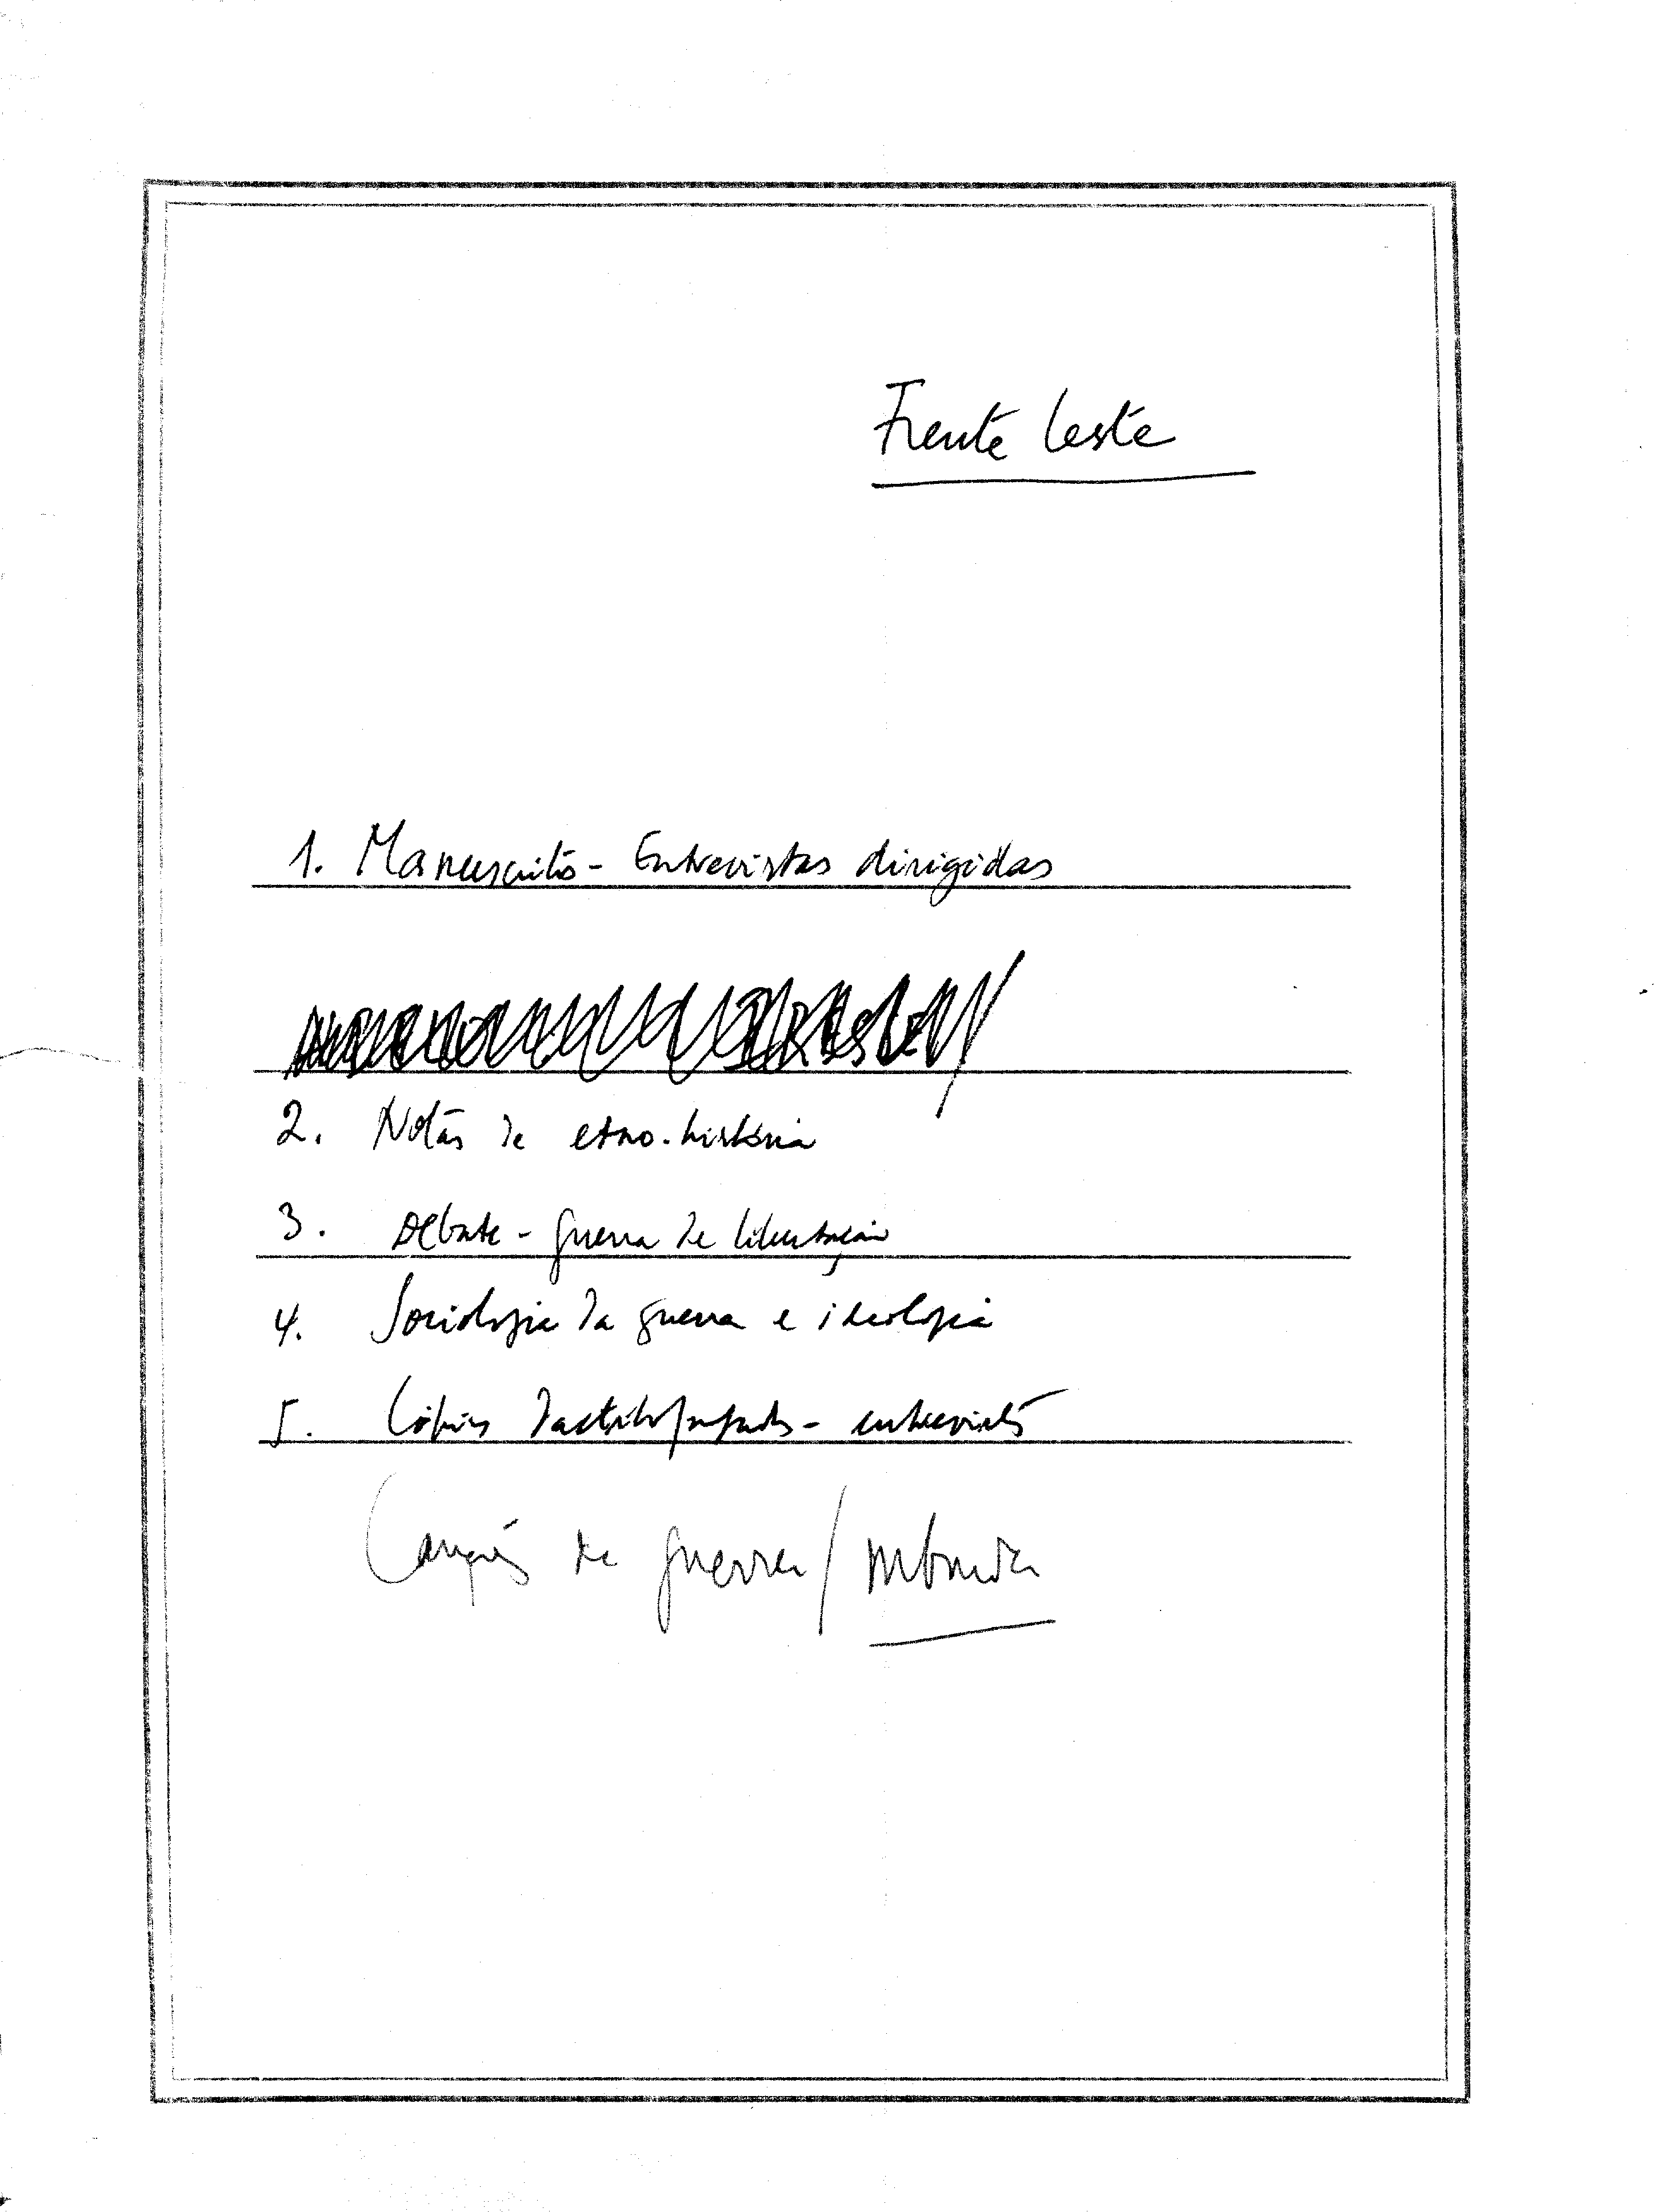 Frente Leste
1. Manuscrito - Entrevistas dirigidas
2. Notas de etno-história
3. Debate - guerra de libertação
4. Sociologia da guerra e ideologia
5. Cópias dactilografadas - entrevistas
Canções de guerra /